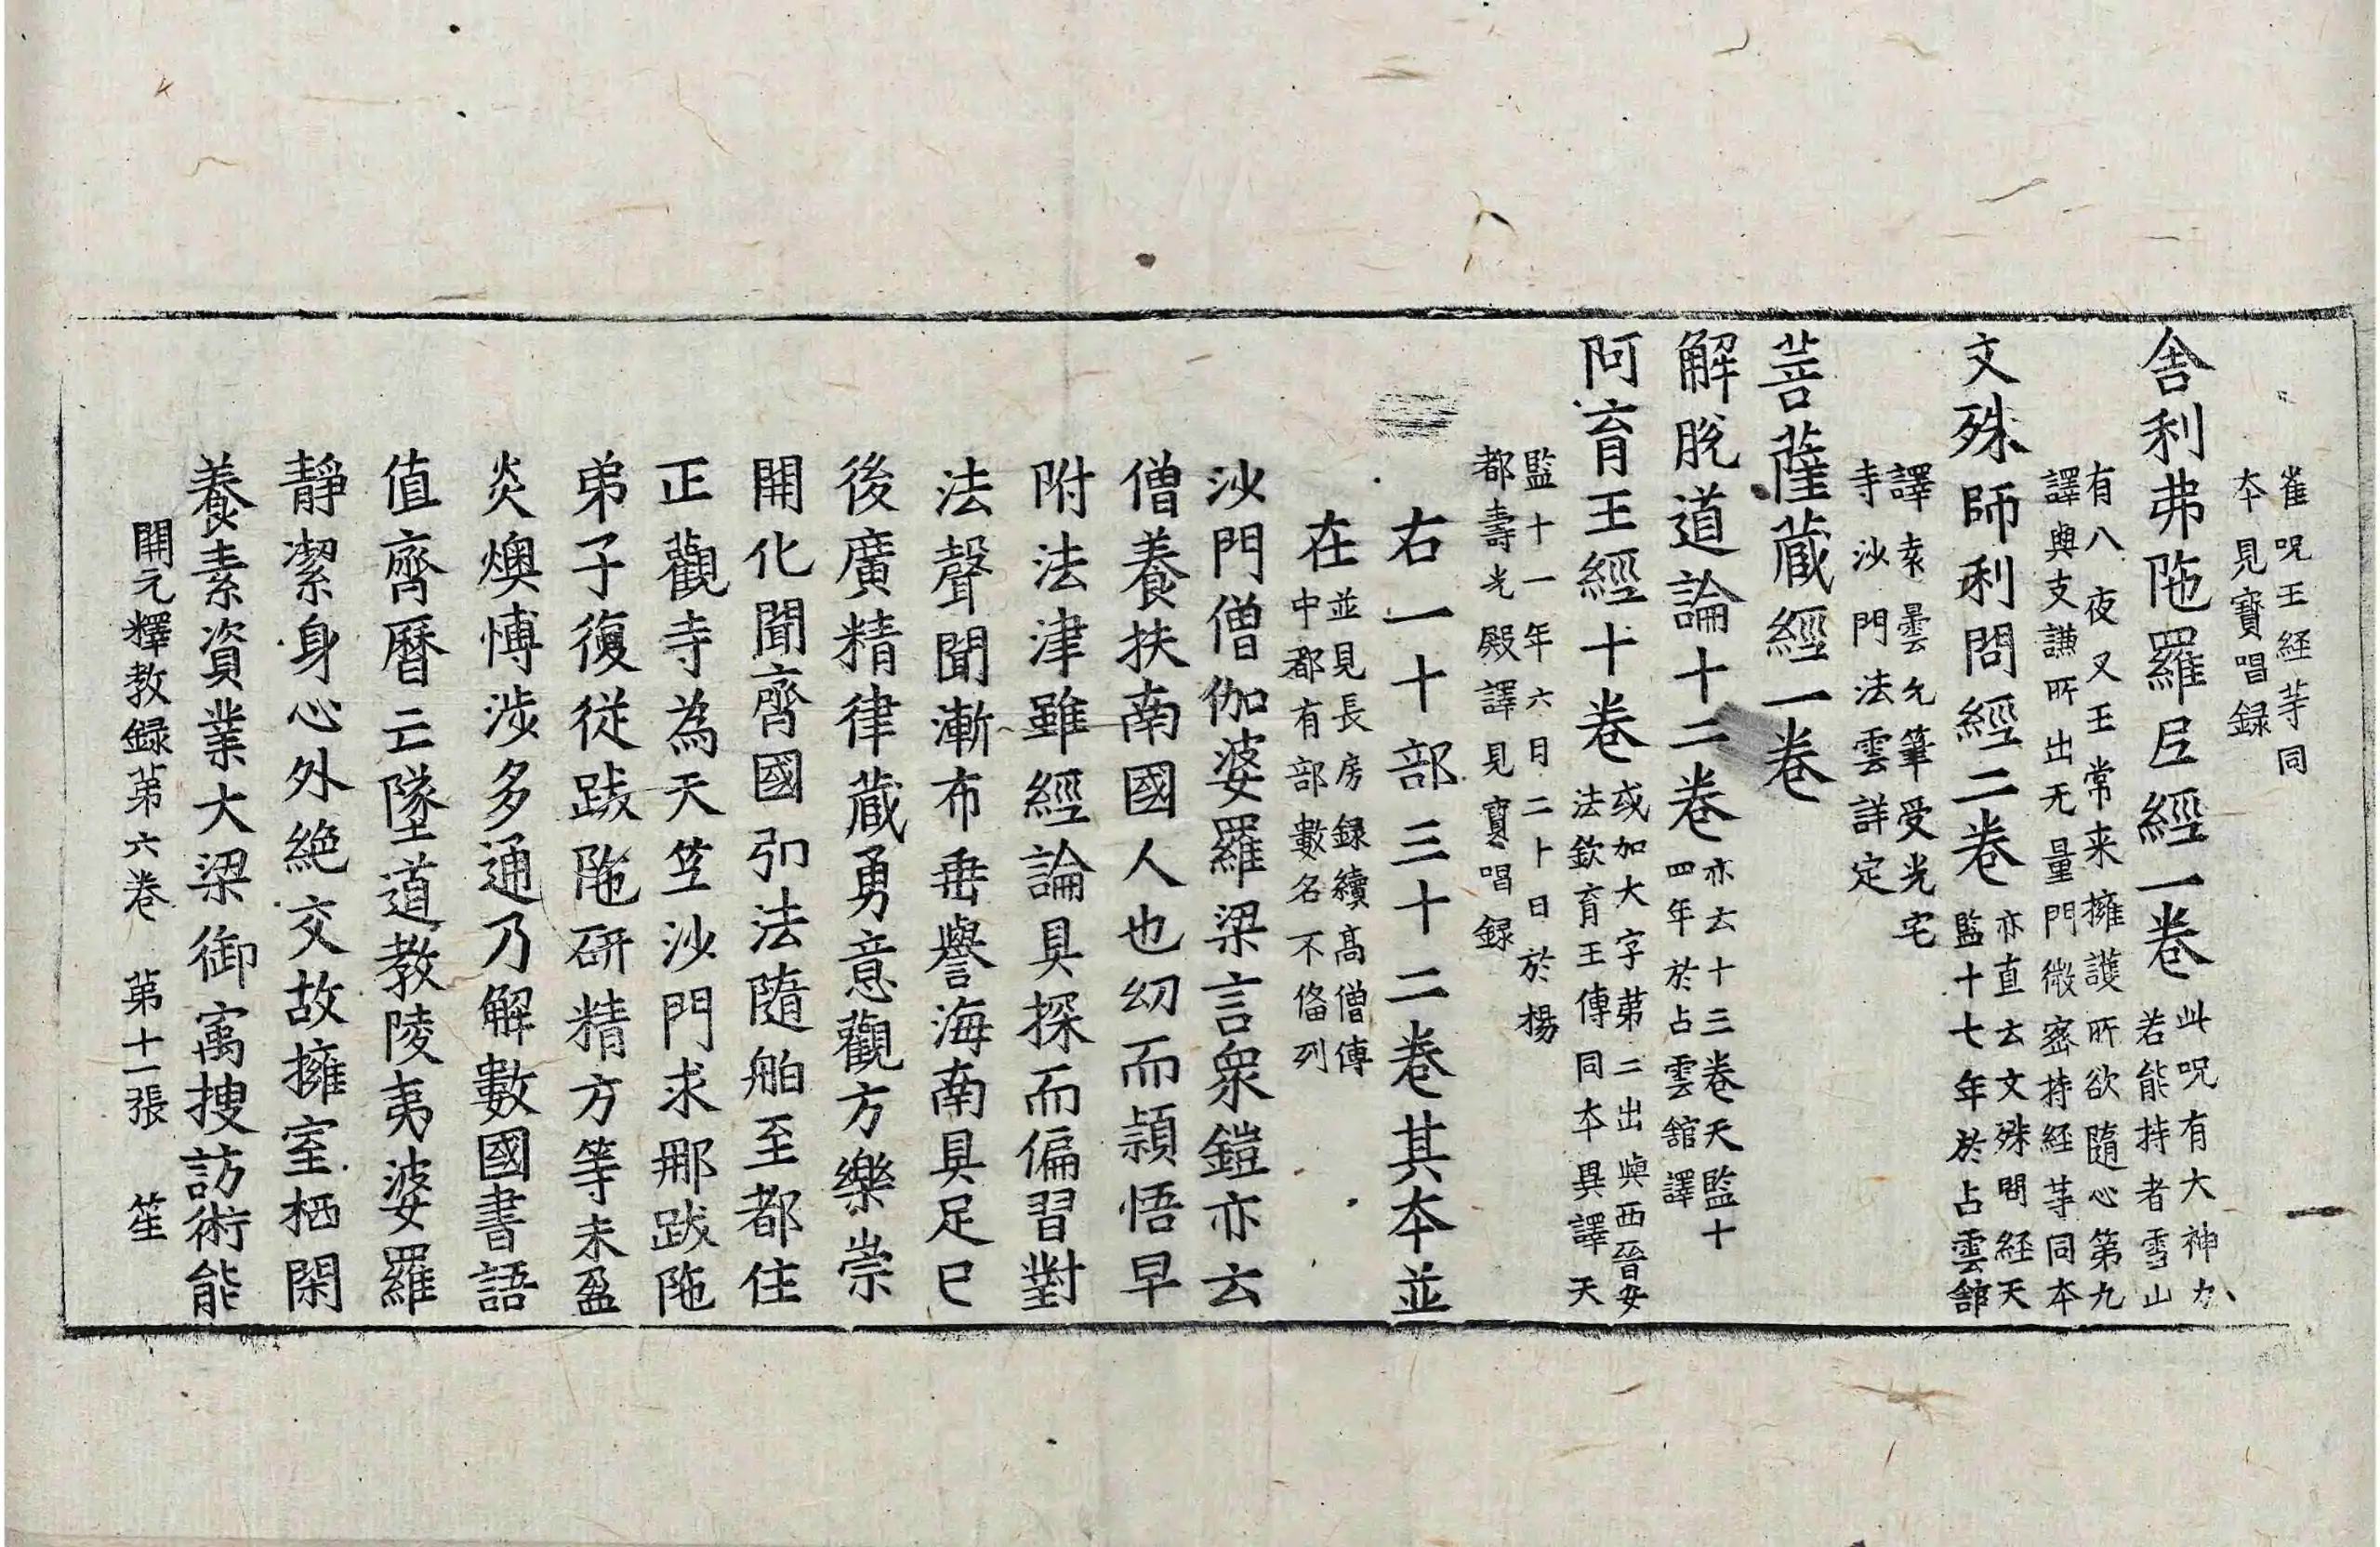 雀呪王経䓁同
夲見寳唱録
舎利弗陁羅𡰱經一卷
此呪有大神力
若能持者雪山
有八夜叉王常来擁護所欲隨心第九
譯與支謙所出无量門微宻持経䓁同夲
文殊師利問經二卷
亦直云文殊問経天
監十七年於占雲舘
譯袁曇允筆受光宅
寺沙門法雲詳定
菩薩蔵經一卷
解脫道論十二卷
亦云十三卷天監十
四年於占雲舘譯
阿育王經十卷
或加大字苐二出與西晉安
法欽育王傳同夲異譯天
監十一年六日二卜日於揚
都壽光殿譯見寶唱録
右一十部三十二卷其夲並
在
並見長房録續髙僧傳
中都有部數名不俻列
沙門僧伽婆羅梁言衆鎧亦云
僧養扶南國人也㓜而頴悟早
附法津雖經論具探而偏習對
法聲聞漸布垂譽海南具足巳
後廣精律蔵勇意觀方樂崇
開化聞齊國弘法隨舶至都住
正觀寺為天笁沙門求那跋陁
弟子復従跋陁研精方等未盈
炎燠愽涉多通乃解數國書語
值齊曆亡墜道教陵夷婆羅
靜潔身心外絶交故擁室栖閑
養素資業大梁御寓搜訪術能
開元釋教録苐六卷　苐十一張　笙